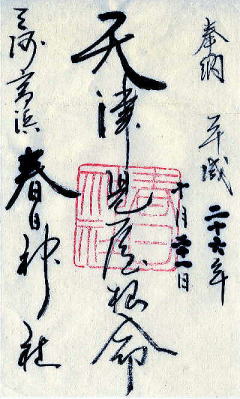 奉納
平成二十六年
十月十一日
天津児屋根命
三河高浜
春日神社
春日神社